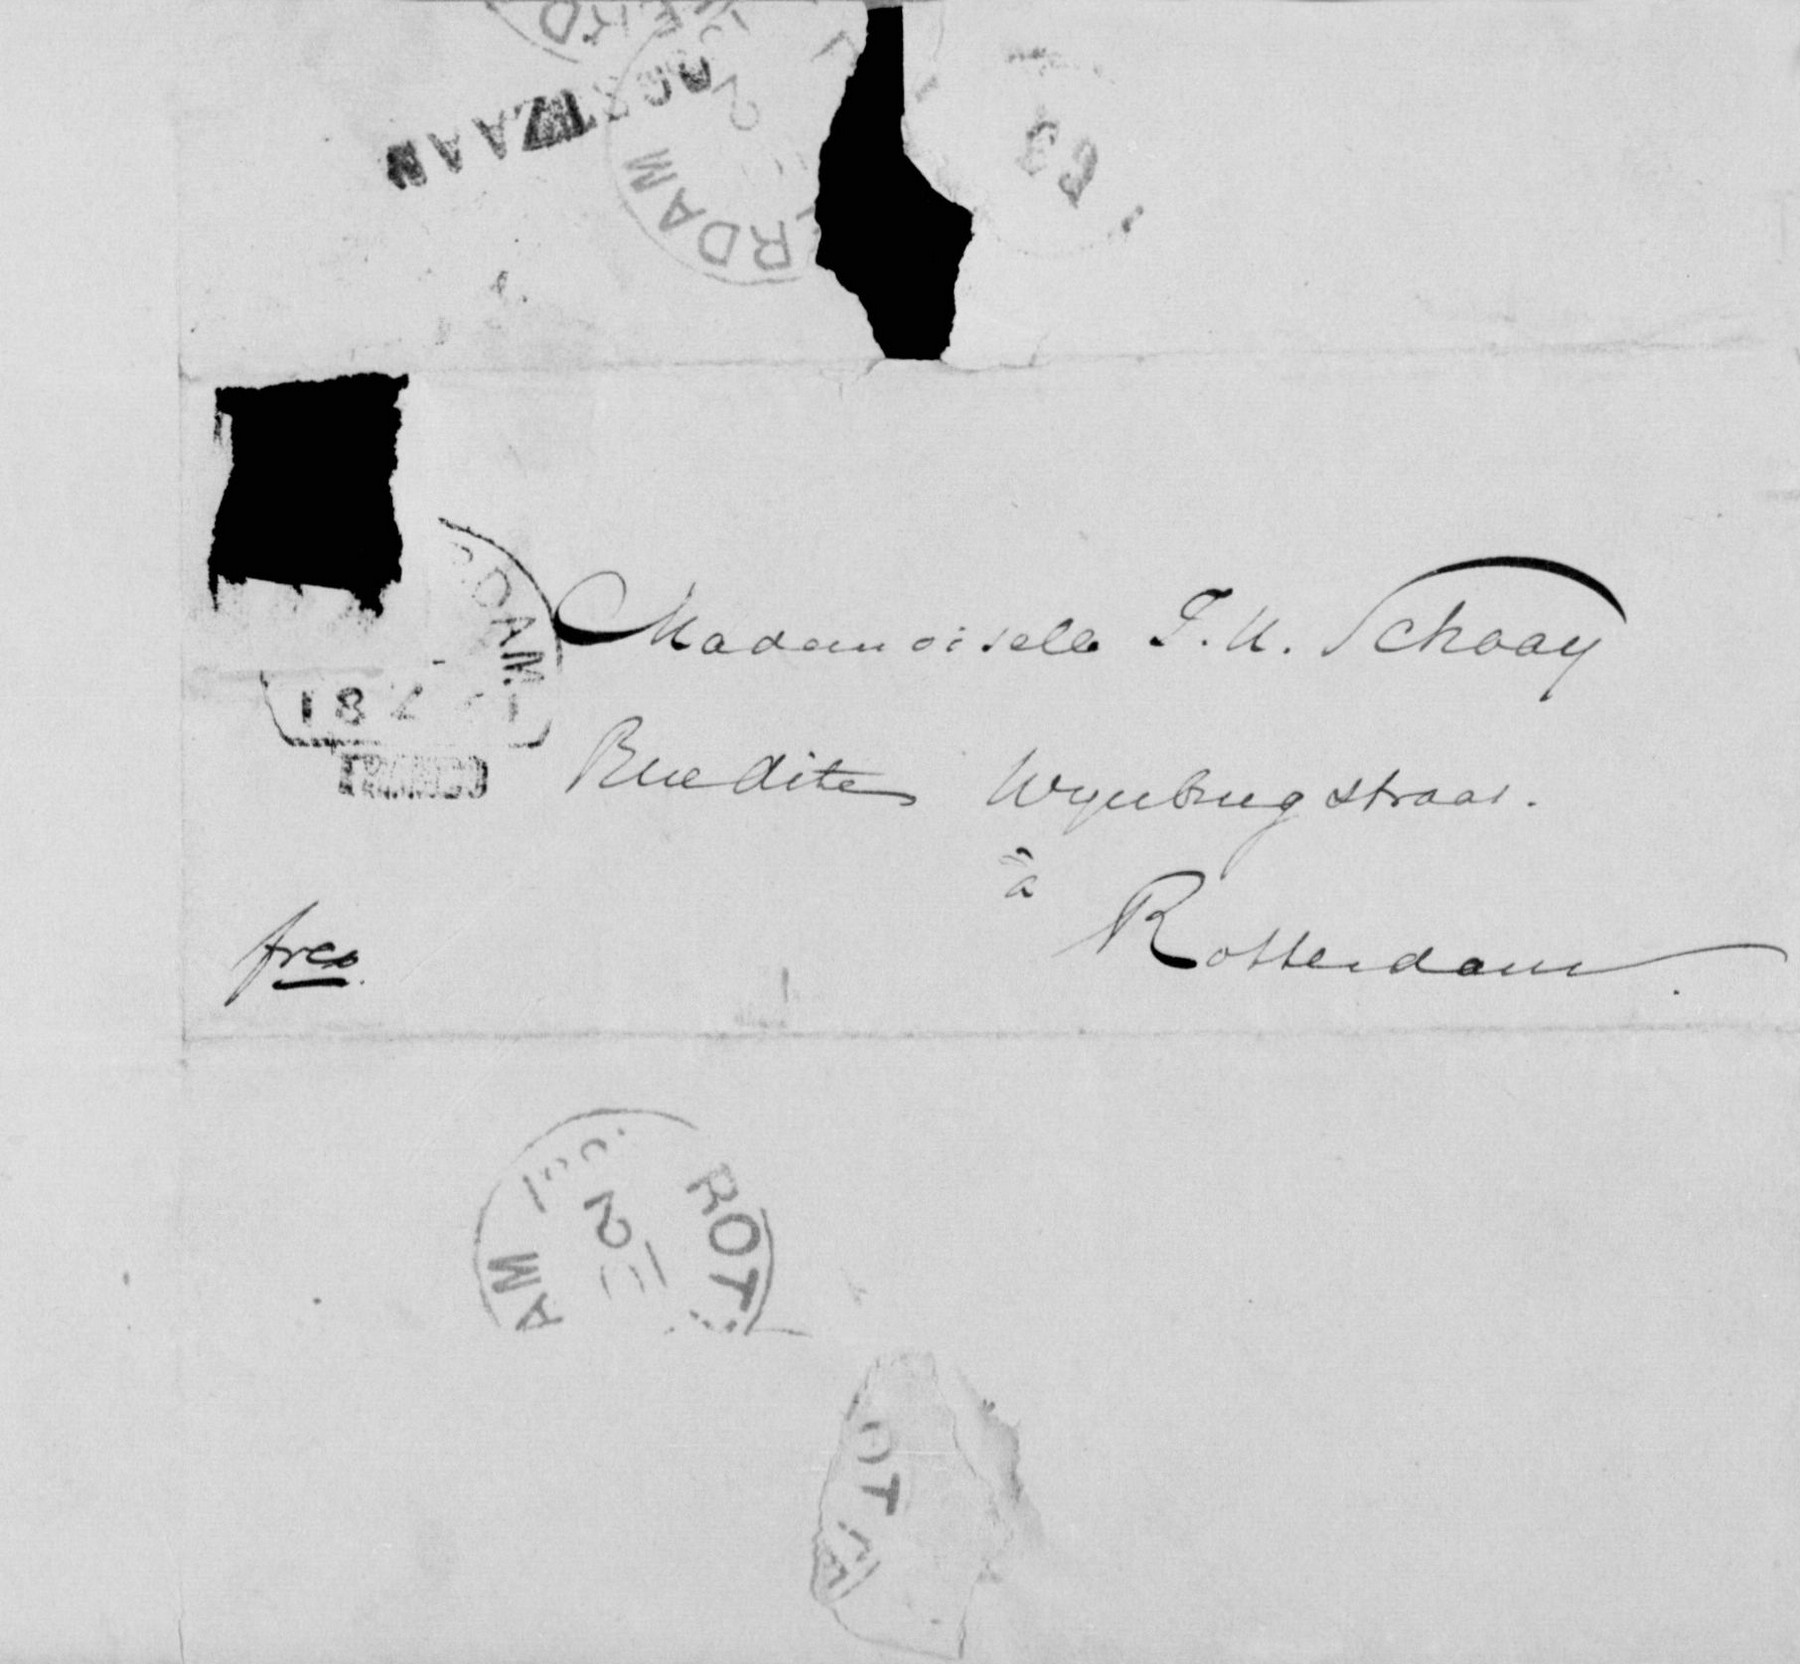 OOSTZAAN
RDAM
2
RDAM
187
FRANCO
Mademoiselle F. U. Schaay
Rue dite Wynbrugstraat.
à
Rotterdam.
frco.
ROT
AM
2
OT